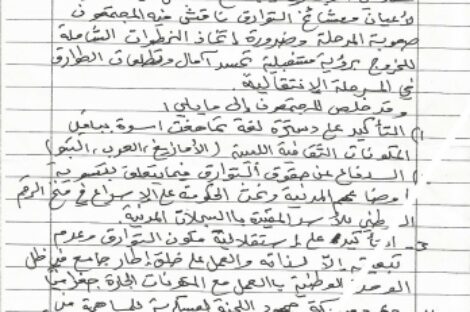 لأعيان ومشائخ التوارق ناقش فيه المجتمعون
صعوبة المرحلة وضرورة اتخاذ الخطوات الشاملة
للخروج برؤية مستقبلية تجسد آمال وتطلعات الطوارق
في المرحلة الانتقالية.
وقد خلص المجتمعون إلى ما يلي:
1) التأكيد على دسترة لغة تماهغت أسوة بباقي
المكونات الثقافية الليبية (الأمازيغ، العرب، التبو)
الدفاع عن حقوق التوارق فيما يتعلق بتسوية
أوضاعهم المدنية وتحث الحكومة على الإسراع في منح الرقم
الوطني للأسر المقيدة بالسجلات المدنية
3- التأكيد على استقلالية مكون التوارق وعدم
تبعيته والعمل على خلق إطار جامع في ظل
الوحدة الوطنية بالعمل مع المكونات الجارة جغرافيا
جهود اللجنة العسكرية للمساهمة في